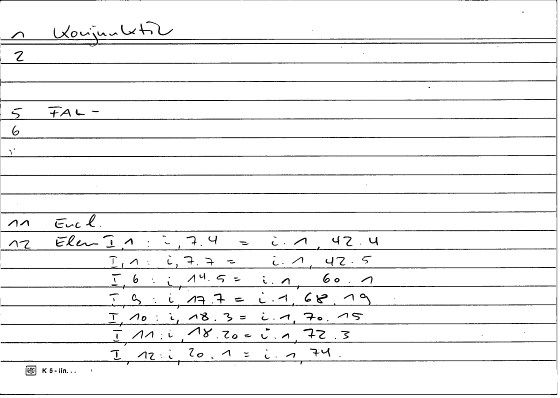 1 Konjunktiv
2
5 FAL -
6
11 Eucl.
12 Elem I, 1 : i, 7.4 = i.1, 42.4
I, 1 : i, 7.7 = i.1, 42.5
I, 6 : i, 14.5 = i.1, 60.1
I, 9 : i, 17.7 = i.1, 68.19
I, 10 : i, 18.3 = i.1, 70.15
I, 11 : i, 18.20 = i.1, 72.3
I, 12 : i, 20.1 = i.1, 74.
K 5 - lin...